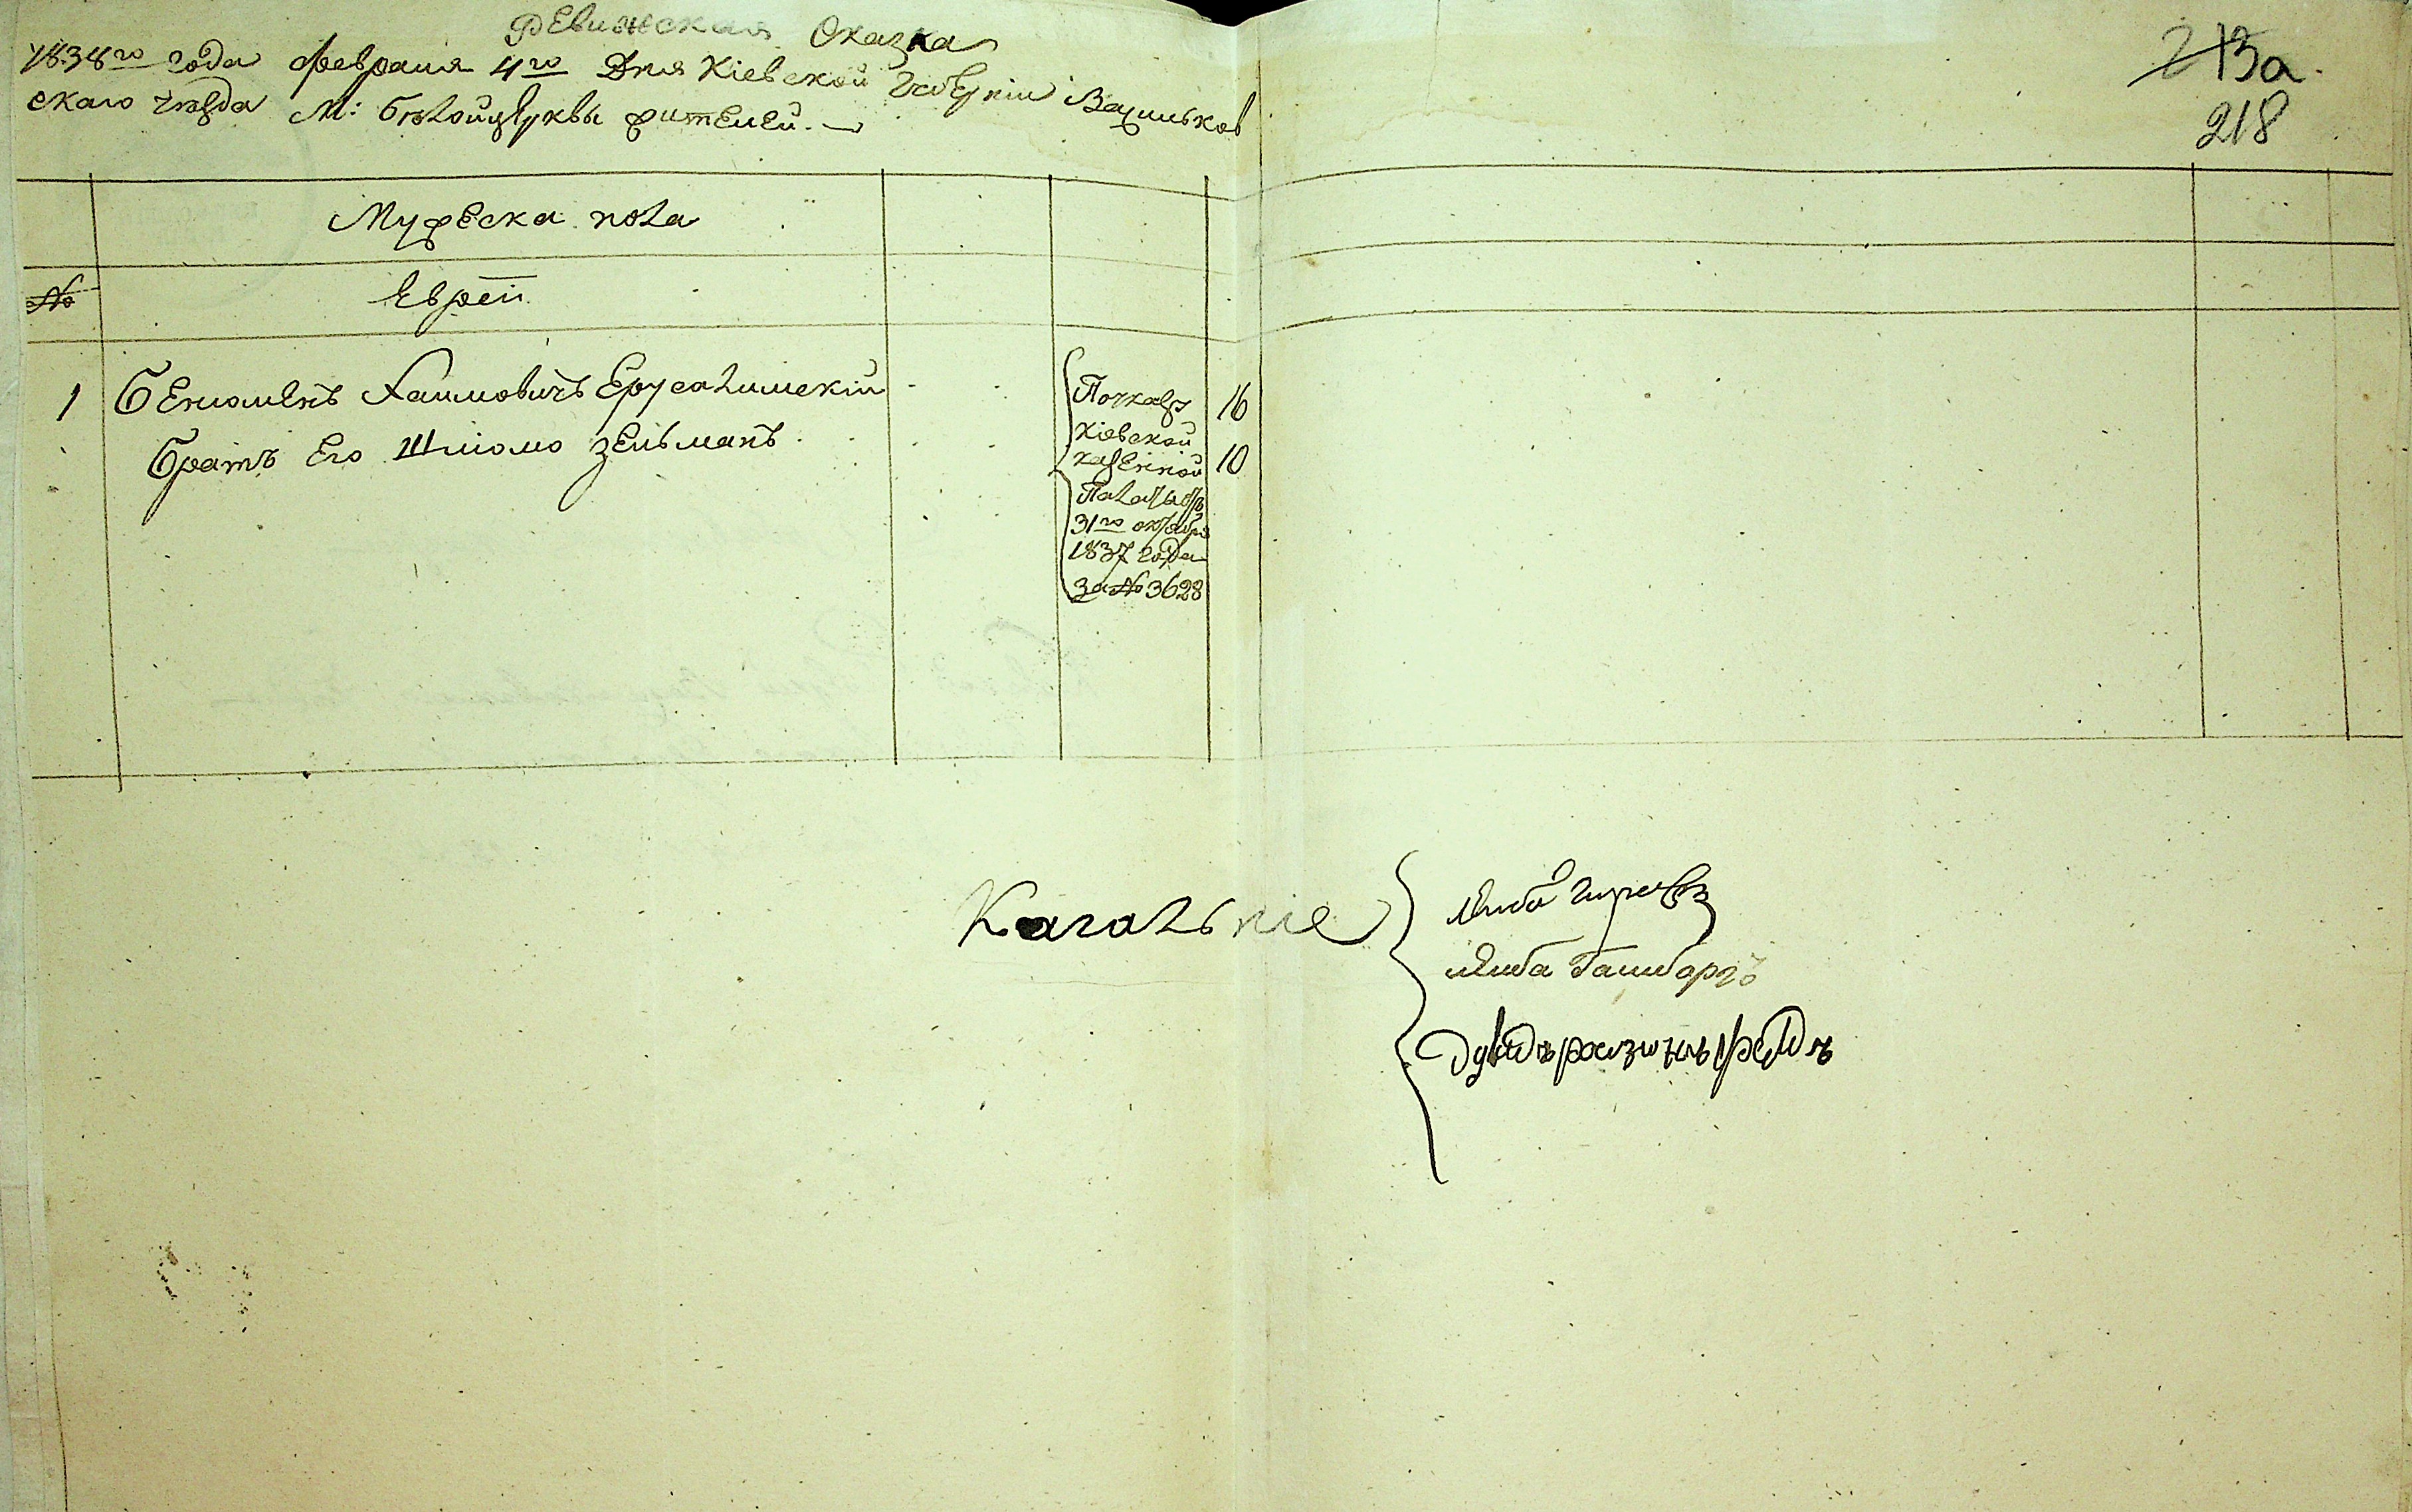 Ревижская Сказка
1838го года февраля 4го Дня Кіевской Губерніи Васильков
скаго уѣзда М: Бѣлойцеркви жителей.
213а.
218
Мужеска пола
№
Евреи
1 Бениоминъ Хаимовичъ Ерусалимскій 16
Братъ Его Шліомо Зельманъ 10
По указу
Кіевской
казенной
Палаты отъ
31го октября
1837 года
за № 3628
Кагальніе
Лейба
Лейба